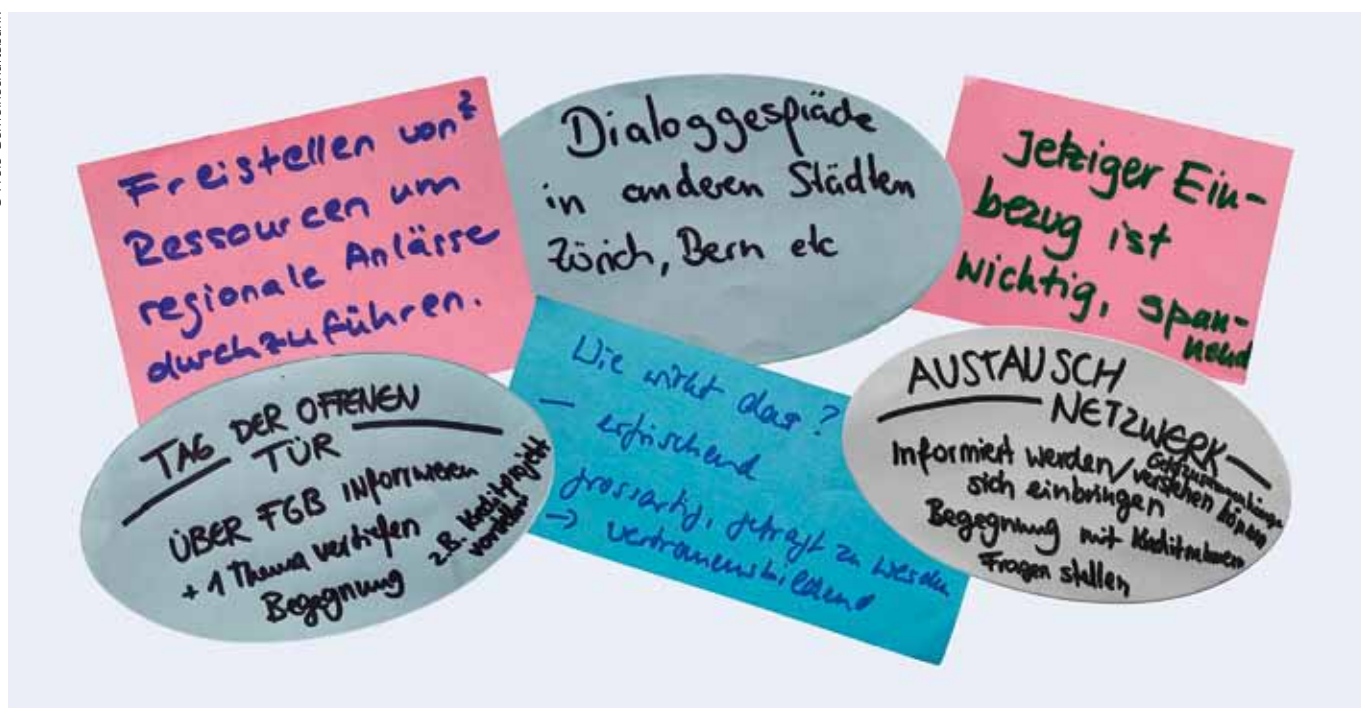 Freistellen von?
Ressourcen um
regionale Anlässe
durchzuführen.
Dialoggespräche
in anderen Städten
Zürich, Bern etc
Jetziger Ein-
bezug ist
wichtig, span-
nend
TAG DER OFFENEN
TÜR
ÜBER FGB INFORMIEREN
+ 1 Thema vertiefen
Begegnung
z.B. Kreditprojekt
vorstellen
Wie wirkt das?
– erfrischend
grossartig, gefragt zu werden
→ vertrauensbildend
AUSTAUSCH
NETZWERK
Informiert werden/verstehen können
Geldzusammenhänge
sich einbringen
Begegnung mit Kreditnehmern
Fragen stellen